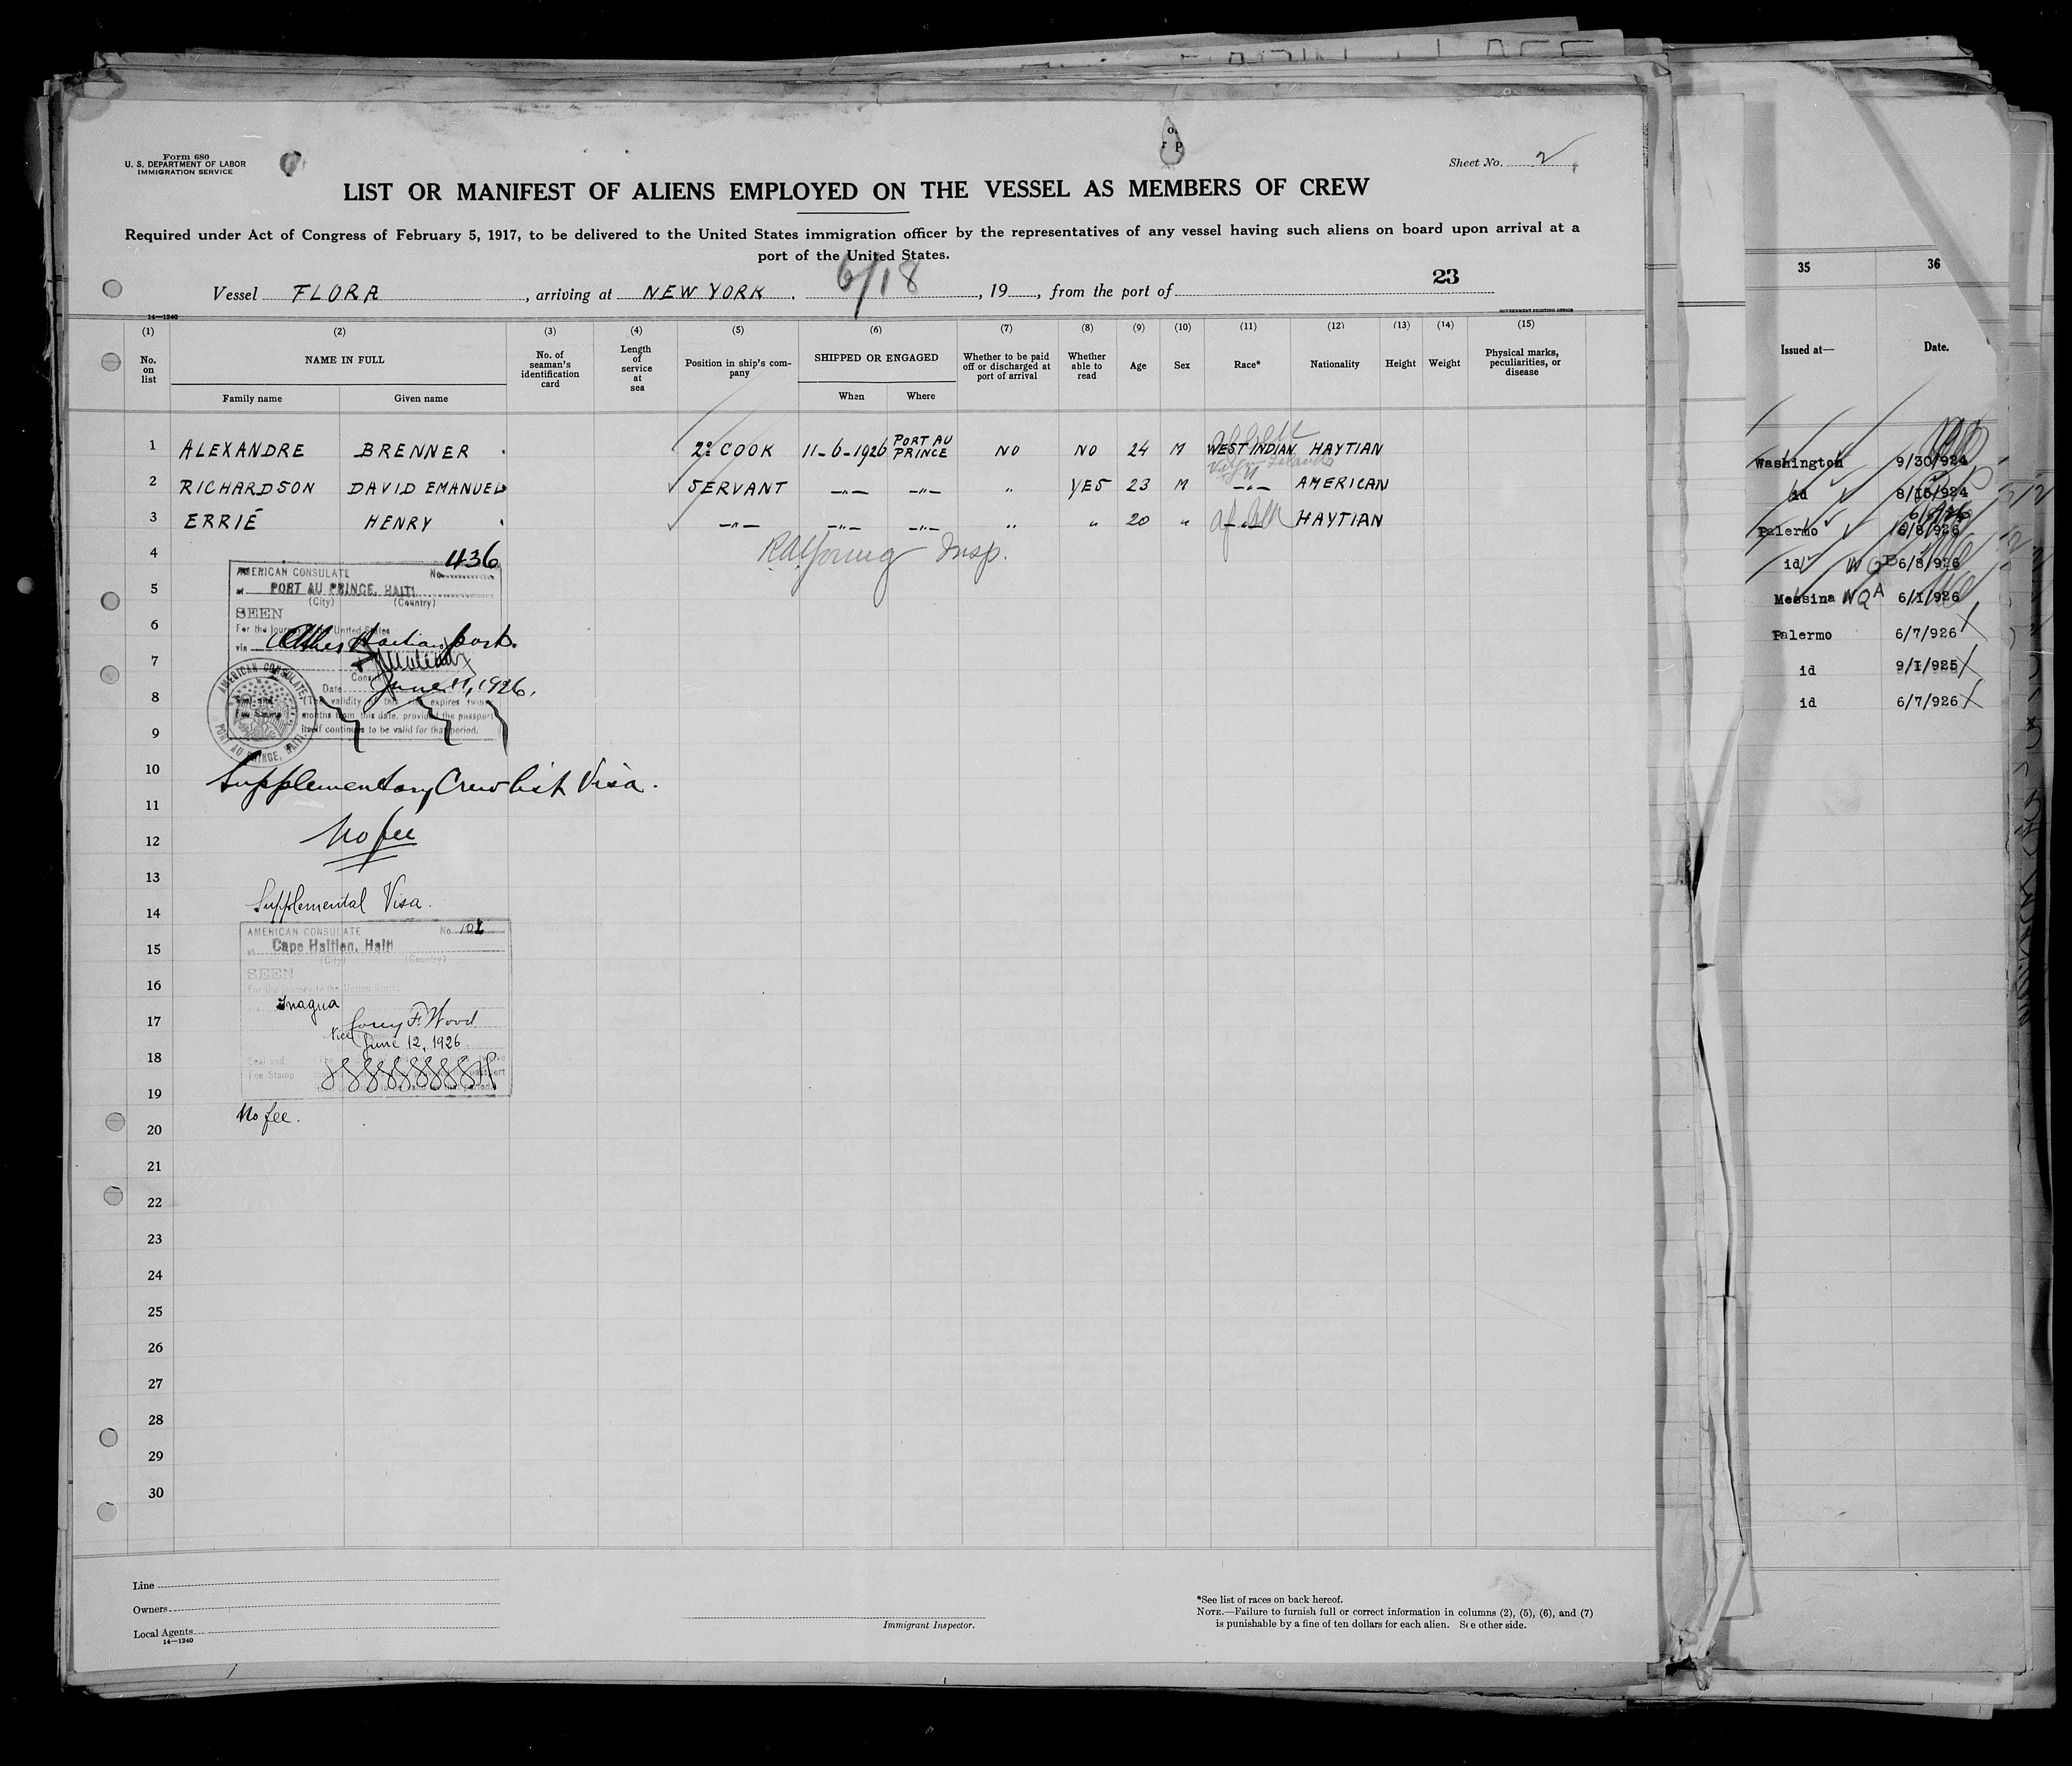 Form 680
U. S. DEPARTMENT OF LABOR
IMMIGRATION SERVICE
Sheet No. 2
LIST OR MANIFEST OF ALIENS EMPLOYED ON THE VESSEL AS MEMBERS OF CREW
Required under Act of Congress of February 5, 1917, to be delivered to the United States immigration officer by the representatives of any vessel having such aliens on board upon arrival at a
port of the United States.
Vessel FLORA, arriving at NEW YORK. 6/18, 19, from the port of 23
14—1240
GOVERNMENT PRINTING OFFICE
(1) (2) (3) (4) (5) (6) (7) (8) (9) (10) (11) (12) (13) (14) (15)
No. on list NAME IN FULL No. of seaman's identification card Length of service at sea Position in ship's company SHIPPED OR ENGAGED Whether to be paid off or discharged at port of arrival Whether able to read Age Sex Race* Nationality Height Weight Physical marks, peculiarities, or disease
Family name Given name When Where
1 ALEXANDRE BRENNER 2º COOK 11-6-1926 PORT AU PRINCE NO NO 24 M WEST INDIAN HAYTIAN
2 RICHARDSON DAVID EMANUEL SERVANT —"— —"— " YES 23 M —"— AMERICAN
3 ERRIÉ HENRY —"— —"— —"— " " 20 " —"— HAYTIAN
4
5
6
7
8
9
10
11
12
13
14
15
16
17
18
19
20
21
22
23
24
25
26
27
28
29
30
Insp.
AMERICAN CONSULATE No. 436
at PORT AU PRINCE, HAITI
(City) (Country)
SEEN
For the journey to the United States
via Other Haitian ports.
Consul
Date June 11, 1926.
(The validity of this visa expires twelve
months from this date, provided the passport
itself continues to be valid for that period.
AMERICAN CONSULATE, PORT AU PRINCE, HAITI
Supplementary Crew list Visa.
No fee
Supplemental Visa.
AMERICAN CONSULATE No. 102
at Cape Haitien, Haiti
(City) (Country)
SEEN
For the journey to the United States
Inagua
Corey F. Wood
Vice
June 12, 1926.
Seal and
Fee Stamp
No fee.
Line
Owners
Local Agents
14—1240
Immigrant Inspector.
*See list of races on back hereof.
NOTE.—Failure to furnish full or correct information in columns (2), (5), (6), and (7)
is punishable by a fine of ten dollars for each alien. See other side.
35 36
Issued at— Date.
Washington 9/30/924
id 8/15/924
Palermo 6/8/926
id 6/8/926
Messina NQA 6/1/926
Palermo 6/7/926
id 9/1/925
id 6/7/926